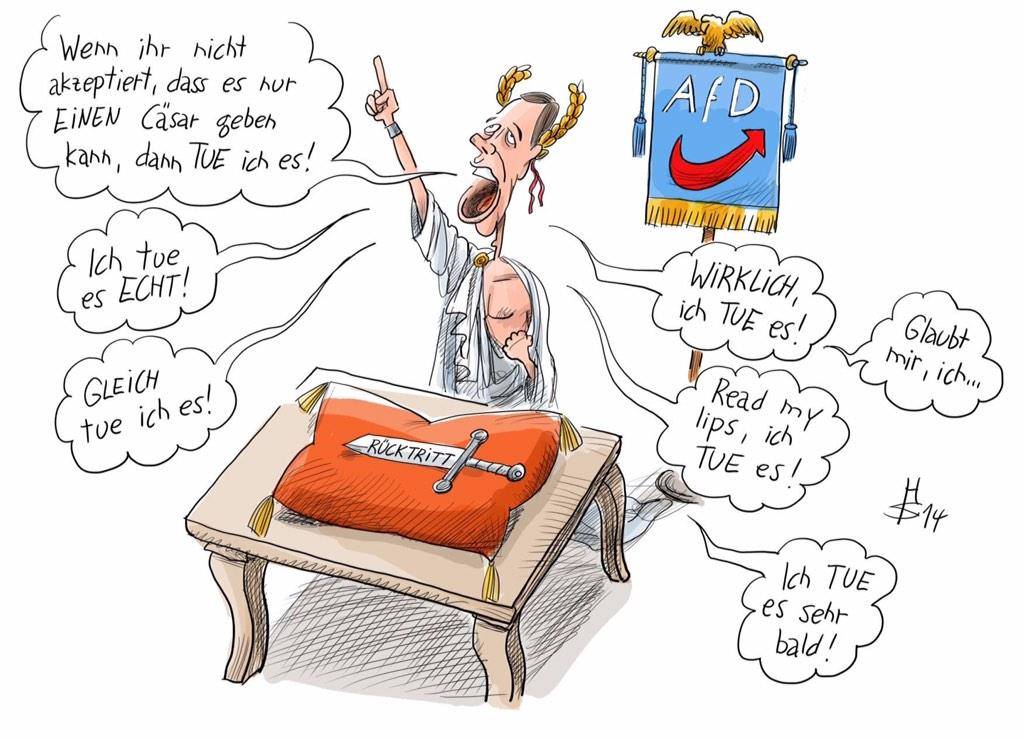 Wenn ihr nicht
akzeptiert, dass es nur
EiNEN Cäsar geben
kann, dann TUE ich es!
Ich tue
es ECHT!
GLEiCH
tue ich es!
AfD
WiRKLiCH,
ich TUE es!
Glaubt
mir, ich...
Read my
lips, ich
TUE es!
RÜCKTRiTT
Ich TUE
es sehr
bald!
HSG 14